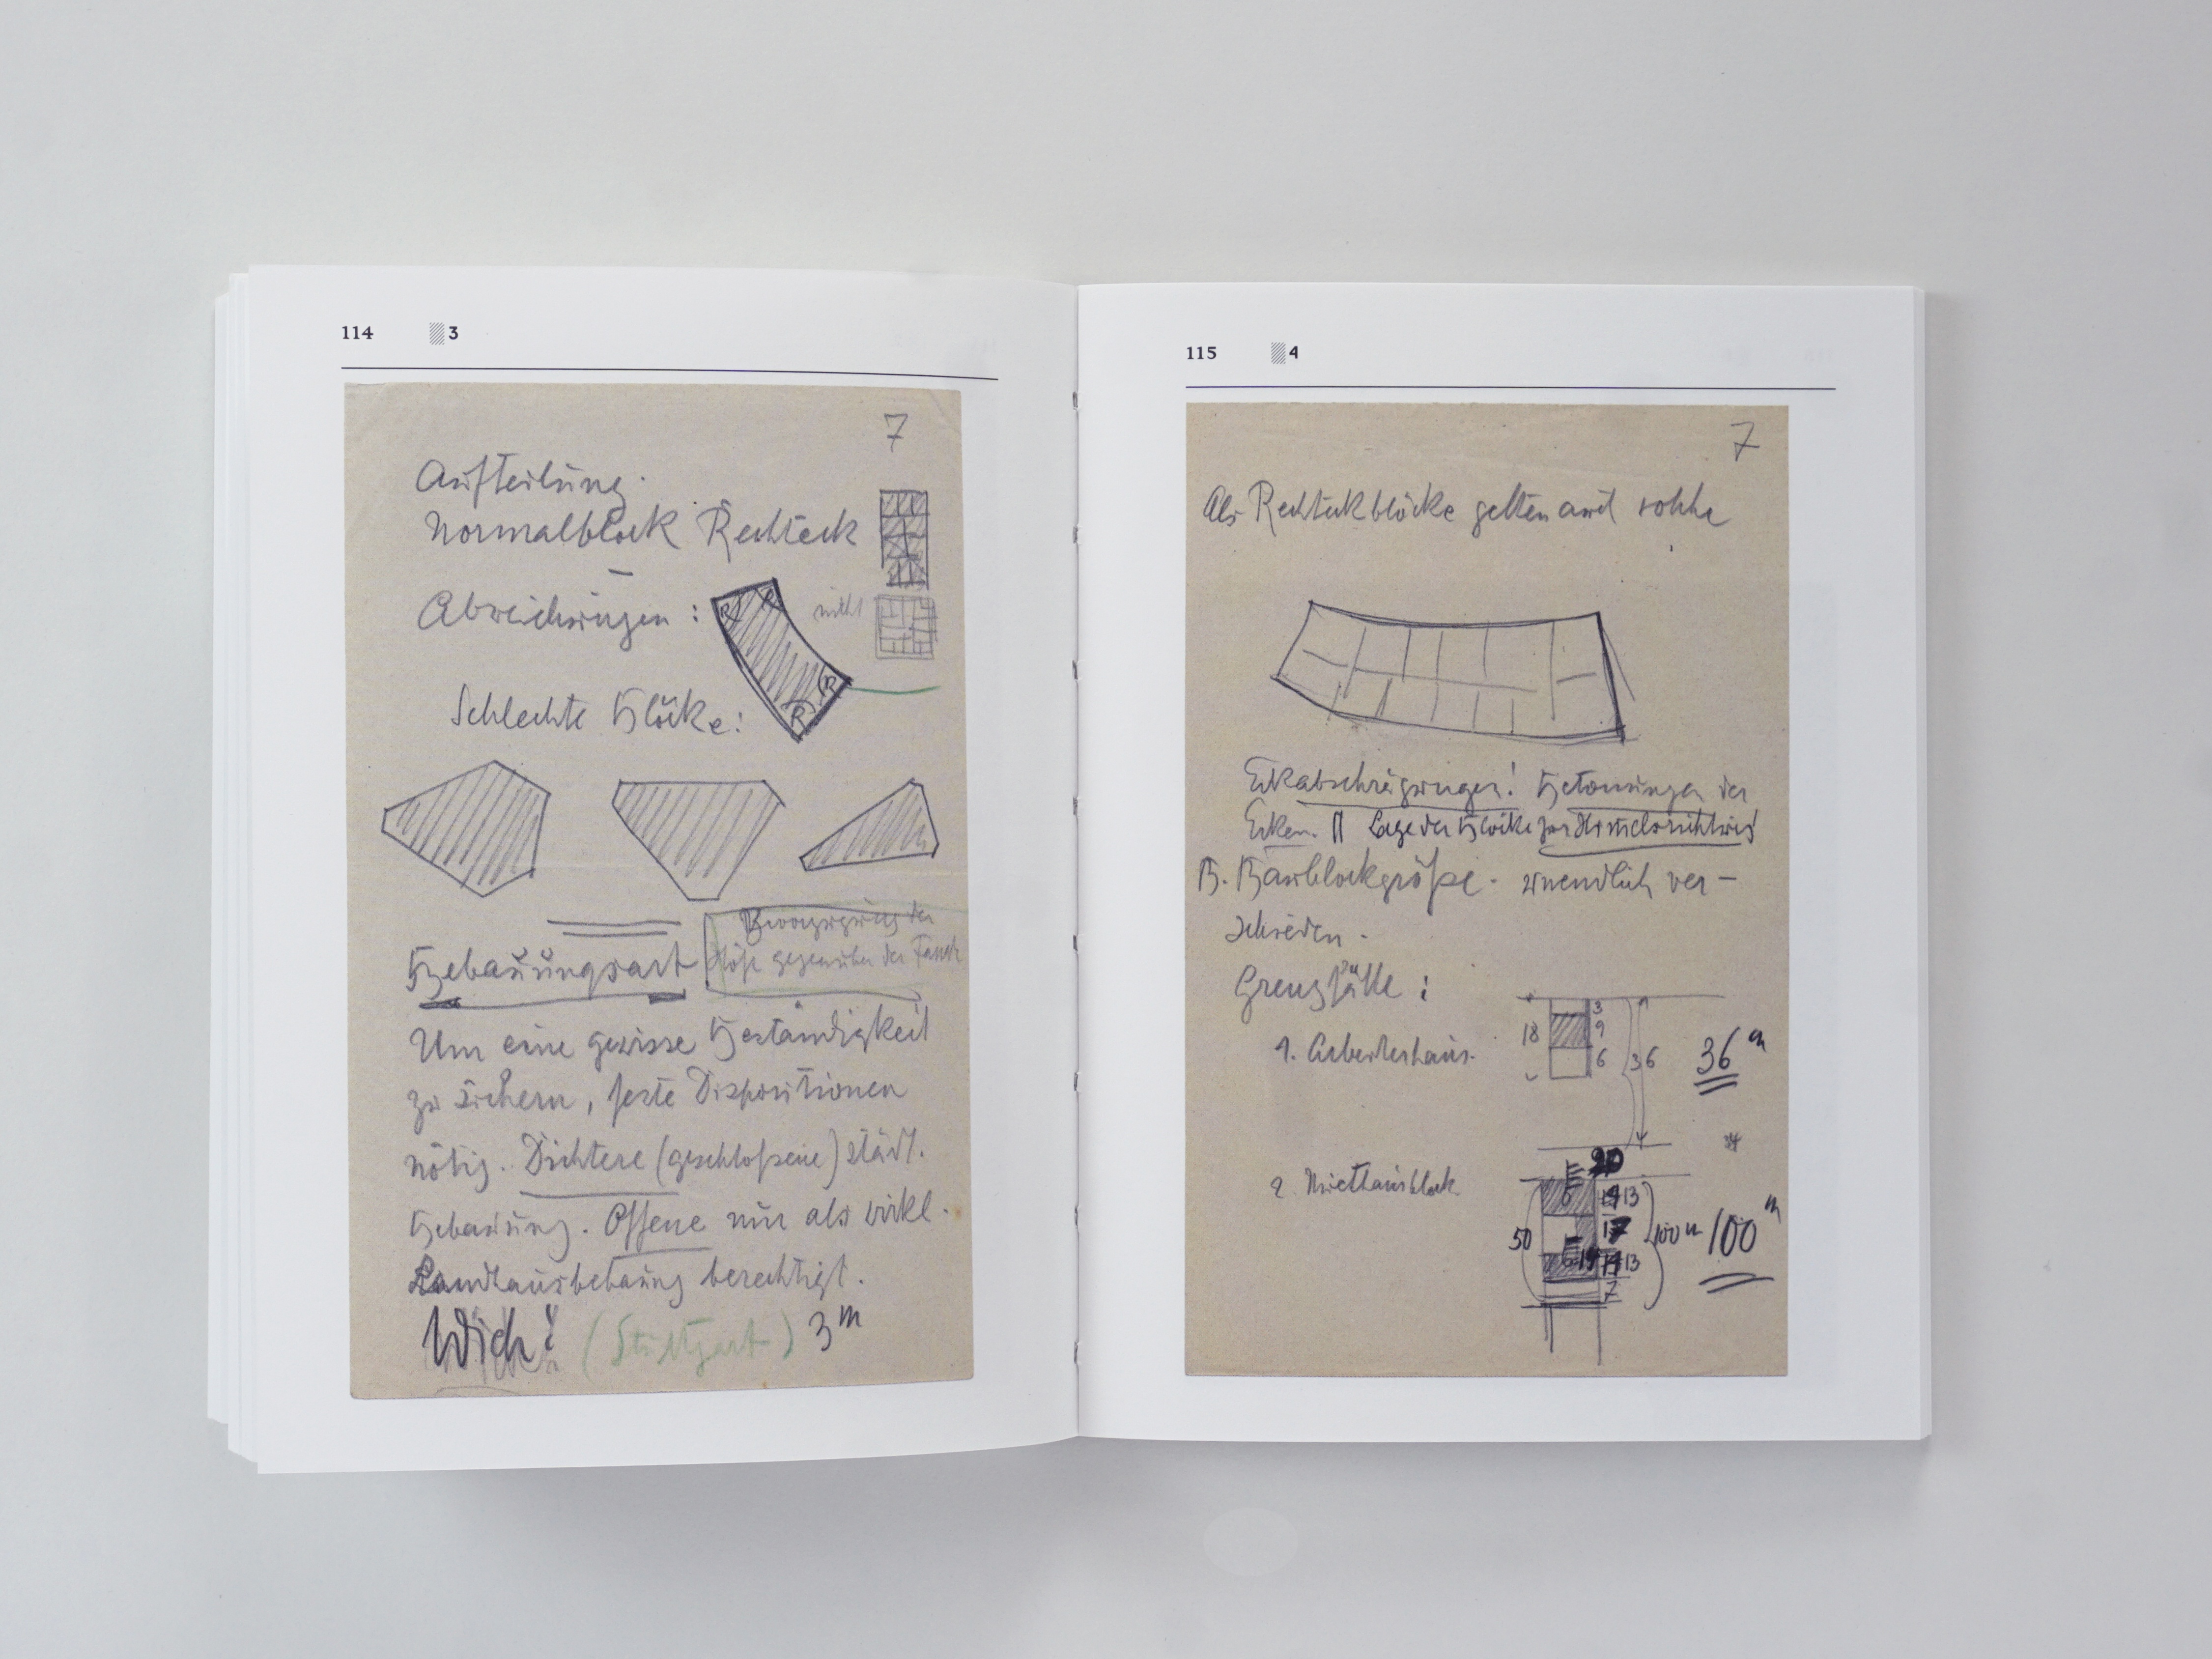 114 3
7
Aufteilung.
Normalblock Rechteck
Abweichungen :
nicht
R R
R
R
Schlechte Blöcke :
Bevorzugung der
gegenüber der
Bebauungsart
Um eine gewisse Beständigkeit
zu sichern, feste Dispositionen
nötig. Dichtere (geschloßene) städt.
Bebauung. Offene nur als wirkl.
Landhausbebauung berechtigt.
Wich! (Stuttgart) 3 m
115 4
7
Als Rechteckblöcke gelten auch solche
Eckabschrägungen! Betonungen der
Ecken. Lage der Blöcke zur
B. Baublockgröße. unendlich ver-
schieden.
Grenzfälle :
1. Arbeiterhaus.
18 3 9 6 36 36 m
2. Miethausblock
20
13
50 17 100 m 100 m
13
7